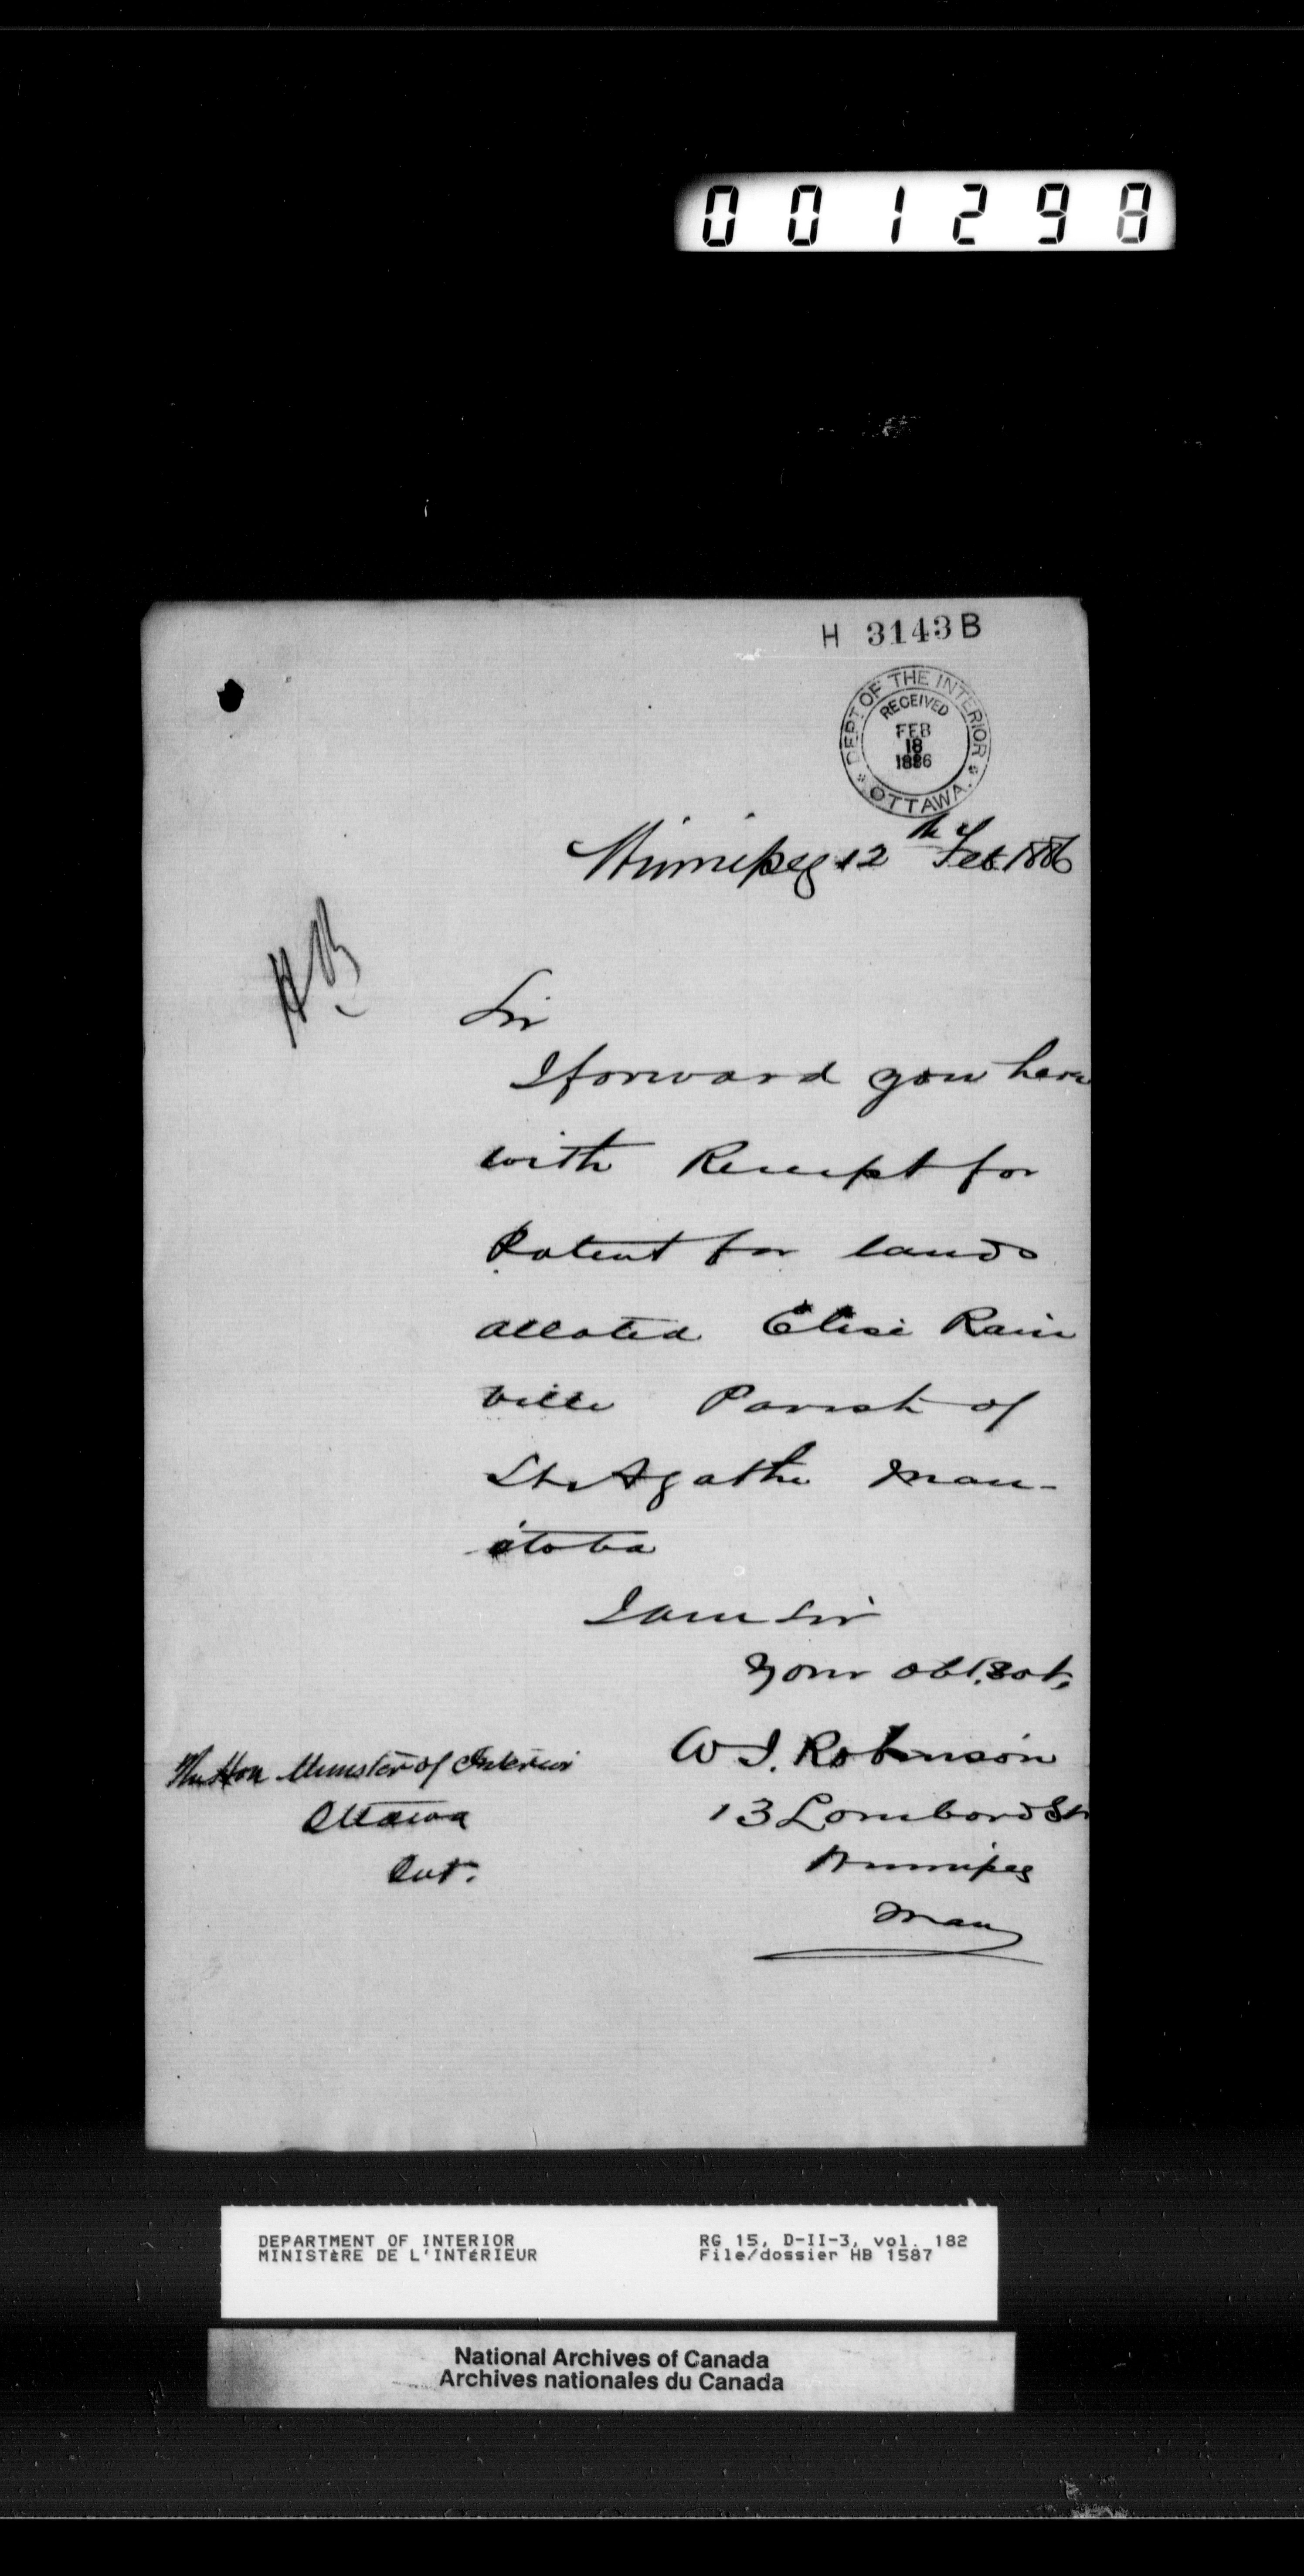 001298
H 3143 B
DEPT OF THE INTERIOR
RECEIVED
FEB
18
1886
OTTAWA.
Winnipeg 12th Feb 1886
HB
Sir
I forward you here
with Receipt for
Patent for lands
alloted Elise Rain
ville Parish of
Ste Agathe Man-
itoba
I am Sir
Your Obt. Svt,
W I. Robinson
13 Lombard St
Winnipeg
Man
The Hon Minister of Interior
Ottawa
Ont.
DEPARTMENT OF INTERIOR
MINISTÈRE DE L'INTÉRIEUR
RG 15, D-II-3, vol. 182
File/dossier HB 1587
National Archives of Canada
Archives nationales du Canada